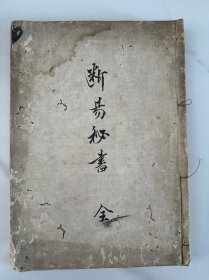 断易秘書 全